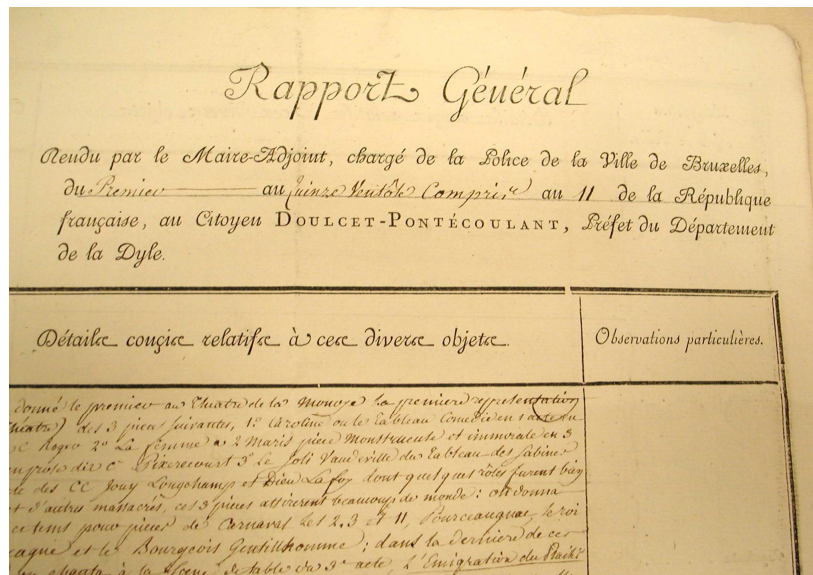 Rapport Général
Rendu par le Maire-Adjoint, chargé de la Police de la Ville de Bruxelles,
du Premier au Quinze Ventôse Compris au 11 de la République
française, au Citoyen DOULCET-PONTÉCOULANT, Préfet du Département
de la Dyle.
Détails conçis relatifs à ces divers objets.
Observations particulières.
donné le premier au Théatre de la Monoye la premiere representation
des 3 pieces suivantes, 1° Caroline ou le Tableau Comedie en 1 acte du
C Roger 2° La femme a 2 Maris piece Monstrueuse et immorale en 3
prose du C Pixerecourt 3° le Joli Vaudeville du Tableau des Sabines
des CC Jouy Longchamp et Dieu La foy dont quelques rôles furent bien
d'autres manacrés, ces 3 pieces attirerent beaucoup de monde : on donna
ce tems pour pieces de Carnaval les 2, 3 et 11, Pourceaugnac, le roi
cagne et le Bourgeois Gentilhomme ; dans la derniere de ces
chanta à la Scene de table du 3e acte, l'Emigration du